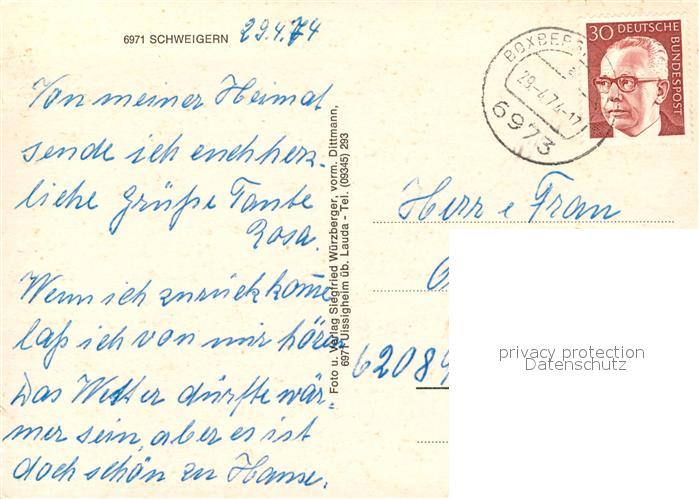 6971 SCHWEIGERN 29.4.74
Von meiner Heimat
sende ich euch herz-
liche Grüße Tante
Rosa.
Wenn ich zurück komme
laß ich von mir hören
Das Wetter dürfte wär-
mer sein, aber es ist
doch schön zu Hause.
Foto u. Verlag Siegfried Würzberger, vorm. Dittmann,
6971 Uissigheim üb. Lauda - Tel. (09345) 293
BOXBERG
29.-4.74-17
6973
30 DEUTSCHE
BUNDESPOST
Herr u Frau
6208
privacy protection
Datenschutz